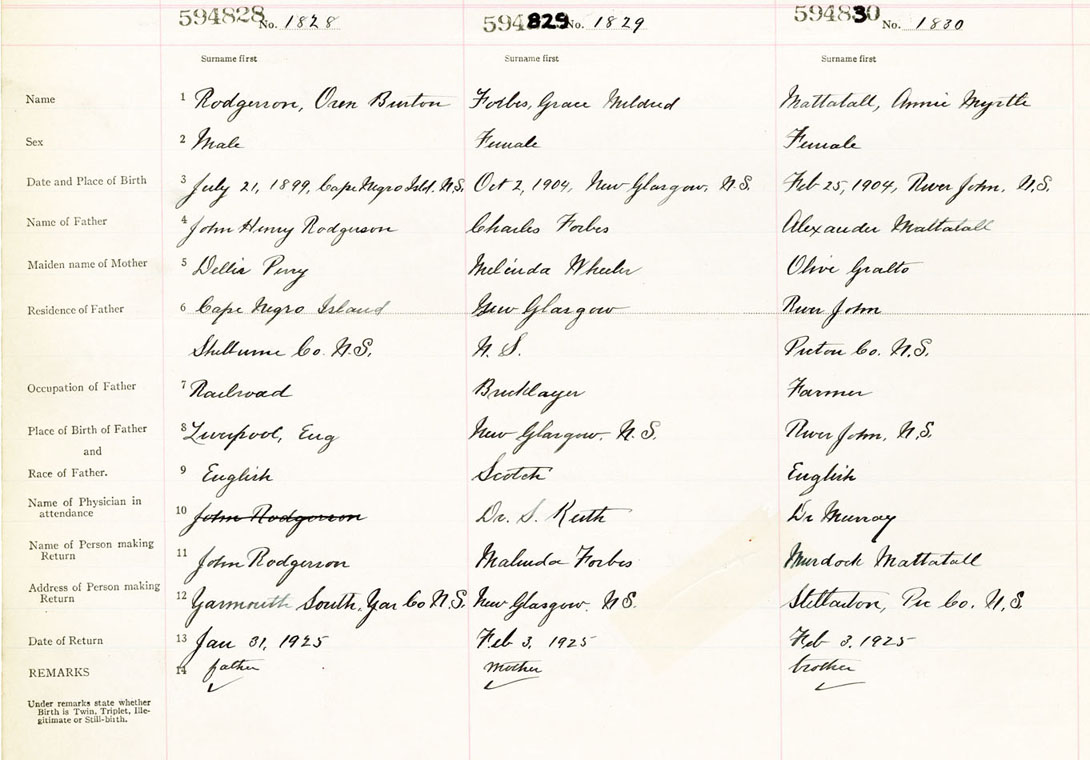 594828 No. 1828 594829 No. 1829 594830 No. 1830
Surname first Surname first Surname first
Name 1 Rodgerson, Oren Burton Forbes, Grace Mildred Mattatall, Annie Myrtle
Sex 2 Male Female Female
Date and Place of Birth 3 July 21, 1899, Cape Negro Isld. N.S. Oct 2, 1904, New Glasgow, N.S. Feb 25, 1904, River John, N.S.
Name of Father 4 John Henry Rodgerson Charles Forbes Alexander Mattatall
Maiden name of Mother 5 Perry Melinda Wheeler Olive Gralto
Residence of Father 6 Cape Negro Island New Glasgow River John
Shelburne Co. N.S. N.S. Pictou Co. N.S.
Occupation of Father 7 Railroad Bricklayer Farmer
Place of Birth of Father 8 Liverpool, Eng New Glasgow. N.S. River John, N.S.
and
Race of Father. 9 English Scotch English
Name of Physician in
attendance 10 John Rodgerson Dr. S. Keith Dr Murray
Name of Person making
Return 11 John Rodgerson Malinda Forbes Murdock Mattatall
Address of Person making
Return 12 Yarmouth South, Yar Co N.S. New Glasgow. N.S. Stellarton, Pic Co. N.S
Date of Return 13 Jan 31, 1925 Feb 3, 1925 Feb 3. 1925
REMARKS 14 father mother brother
Under remarks state whether
Birth is Twin, Triplet, Ille-
gitimate or Still-birth.